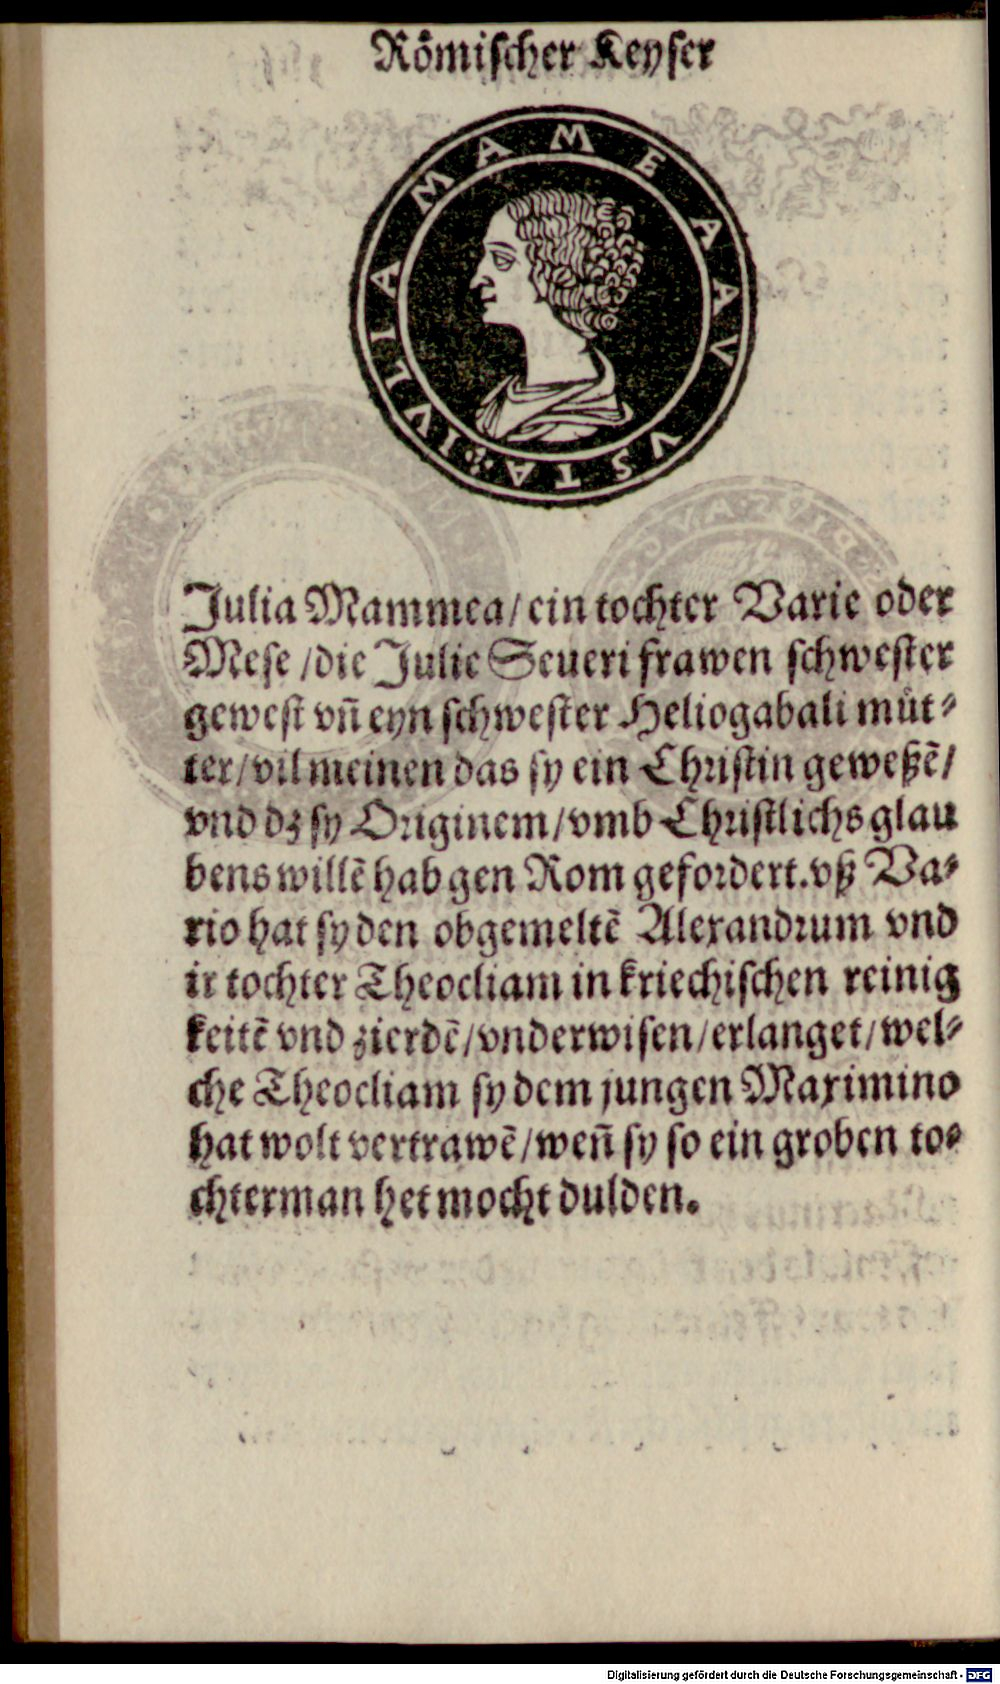 Rõmischer Keyser
IVLIA MAMEA AVVSTA
Julia Mammea/ein tochter Varie oder
Mese/die Julie Seueri frawen schwester
gewest vñ eyn schwester Heliogabali můt⸗
ter/vil meinen das sy ein Christin geweßē/
vnd dz sy Originem/vmb Christlichs glau
bens willē hab gen Rom gefordert. vß Va⸗
rio hat sy den obgemeltē Alexandrum vnd
ir tochter Theocliam in kriechischen reinig
keitē vnd zierdē/vnderwisen/erlanget/wel⸗
che Theocliam sy dem jungen Maximino
hat wolt vertrawē/weñ sy so ein groben to⸗
chterman het mocht dulden.
Digitalisierung gefördert durch die Deutsche Forschungsgemeinschaft - DFG